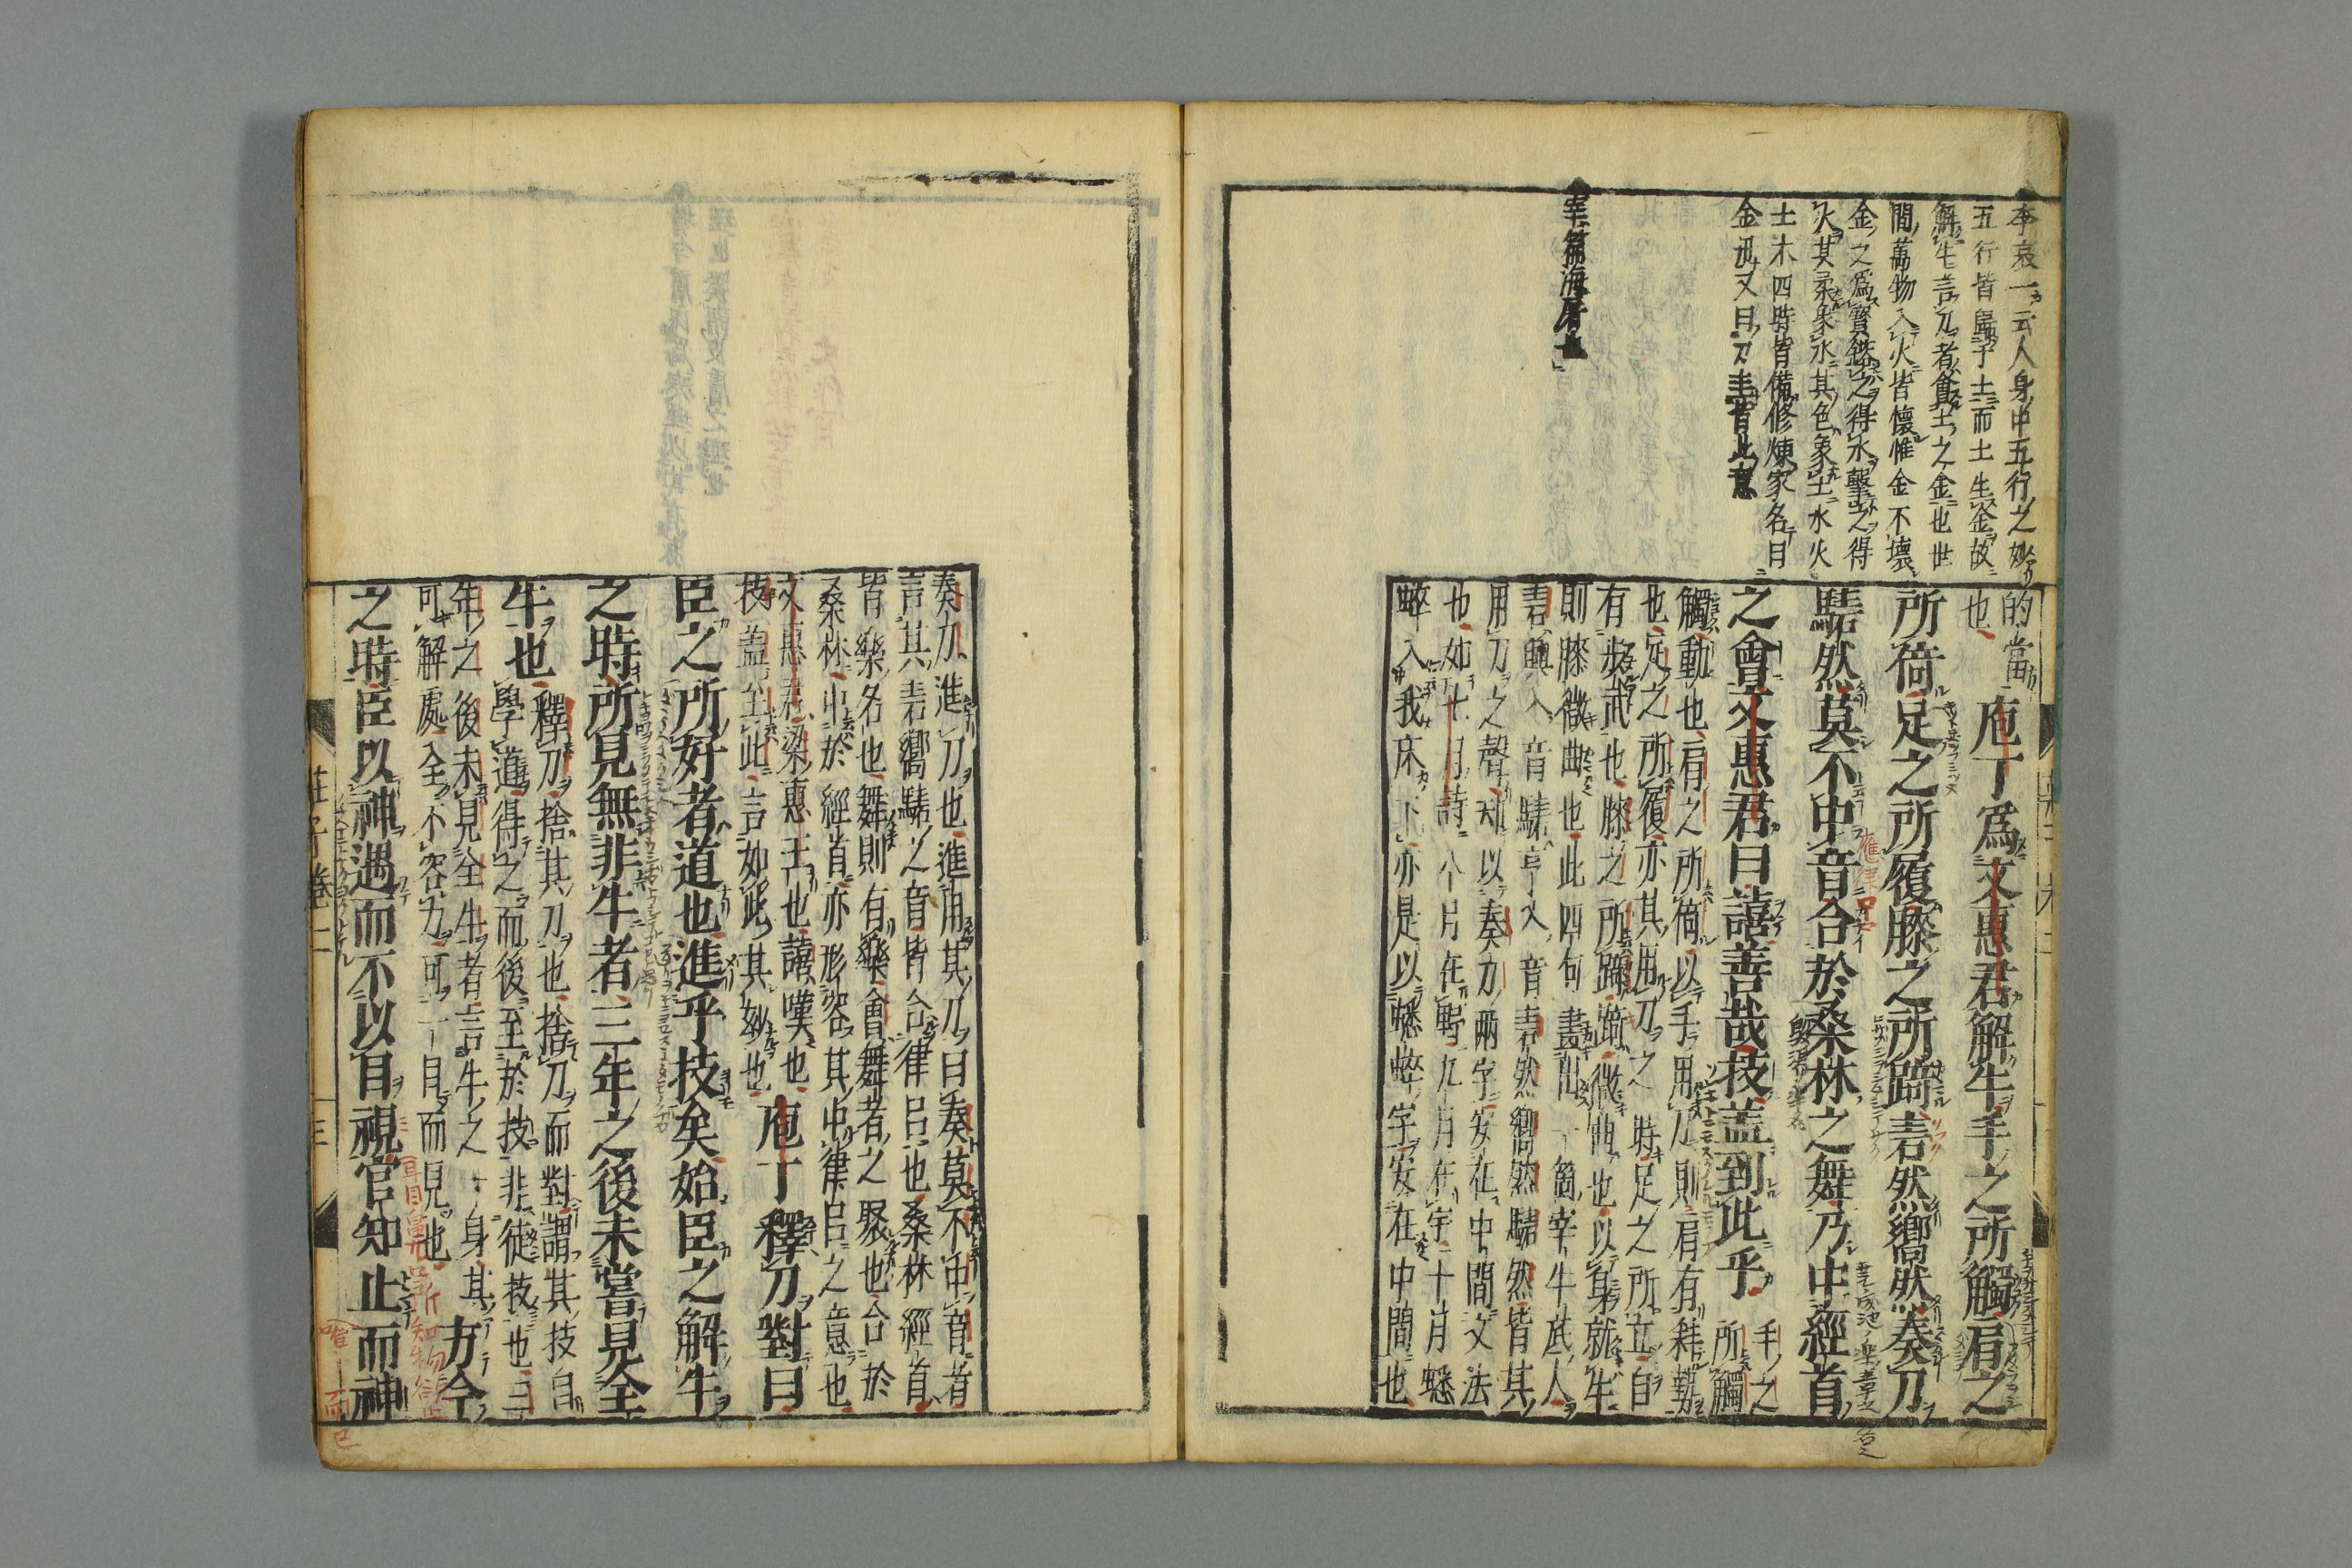 李衷一云人身中五行之妙
五行皆歸于土而土生金故
解牛言刀者食土之金也世
間萬物入火皆懷惟金不壞
金之為寶鎔之得水擊之得
火其柔象水其色象土水火
土木四時皆備修煉家名曰
金又曰刀圭皆此意
宰篇海屠也
的當
也
庖丁為文惠君解牛手之所觸肩之
所倚足之所履膝之所踦砉然嚮然奏刀
騞然莫不中音合於桑林之舞乃中經首
之會文惠君曰譆善哉技盖到此乎
手之
所觸
觸動也肩之所倚以手用刀則肩有斜勢
也足之所履亦其用刀之時足之所立自
有步武也膝之所踦踦微曲也以身就牛
則膝微曲也此四句畫出一箇宰牛底人
砉、入音騞亨入音砉然嚮然騞然皆其
用刀之聲却以奏刀兩字安在中間文法
也如七月詩八月在野九月在宇十月蟋
蟀入我床下亦是以蟋蟀字安在中間也
奏刀進刀也進用其刀曰奏莫不中音者
言其砉嚮騞之音皆合律呂也桑林經首
皆樂名也舞則有樂會舞者之聚也合於
桑林中於經首亦形容其中律呂之意也
文惠君梁惠王也譆嘆也
技蓋至此言如此其妙也
庖丁釋刀對曰
臣之所好者道也進乎技矣始臣之解牛
之時所見無非牛者三年之後未嘗見全
牛也
釋刀捨其刀也捨刀而對謂其技自
學道得之而後至於技非徒技也三
年之後未見全牛者言牛之一身其
可解處全不容力可一目而見也
方今
之時臣以神遇而不以目視官知止而神
莊子卷二
三
應律呂
耳目鼻口所知物
而已